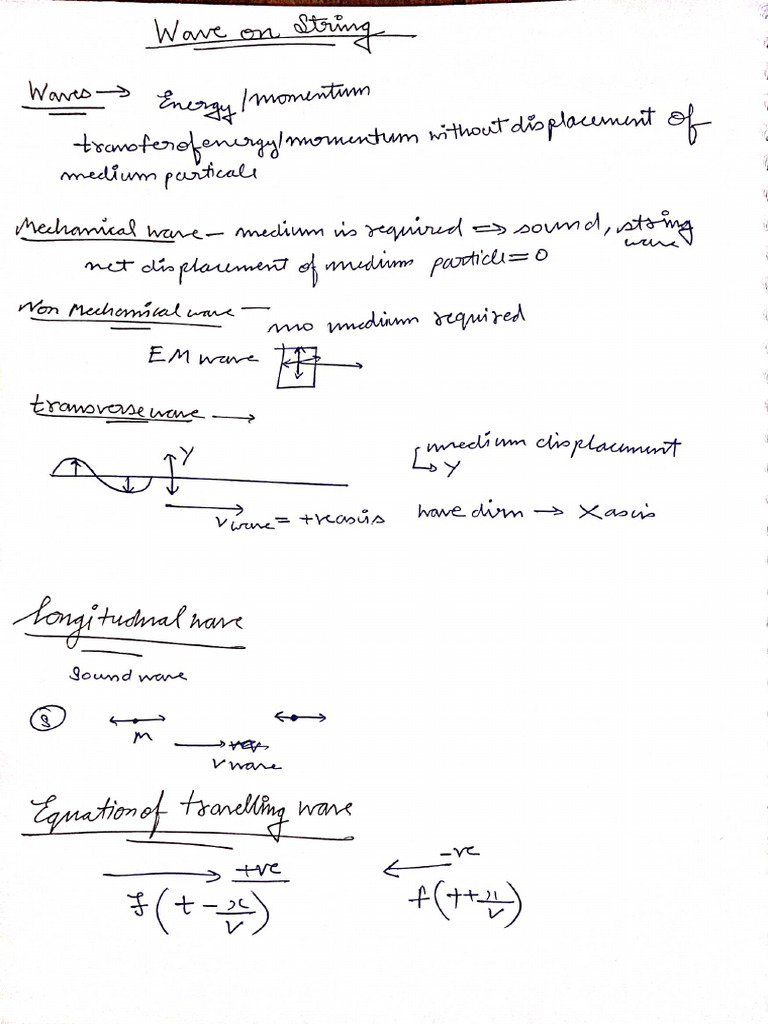 Wave on String
Waves → Energy/momentum
transfer of energy/momentum without displacement of
medium particals
Mechanical wave – medium is required ⇒ sound, string wave
net displacement of medium particle = 0
Non Mechanical wave — no medium required
EM wave
transverse wave →
Y
medium displacement
↳ Y
V wave = +x axis
wave dirn → X axis
Longitudnal wave
Sound wave
S
M
V wave
Equation of travelling wave
+ve
-ve
f(t - x/V)
f(t + x/V)